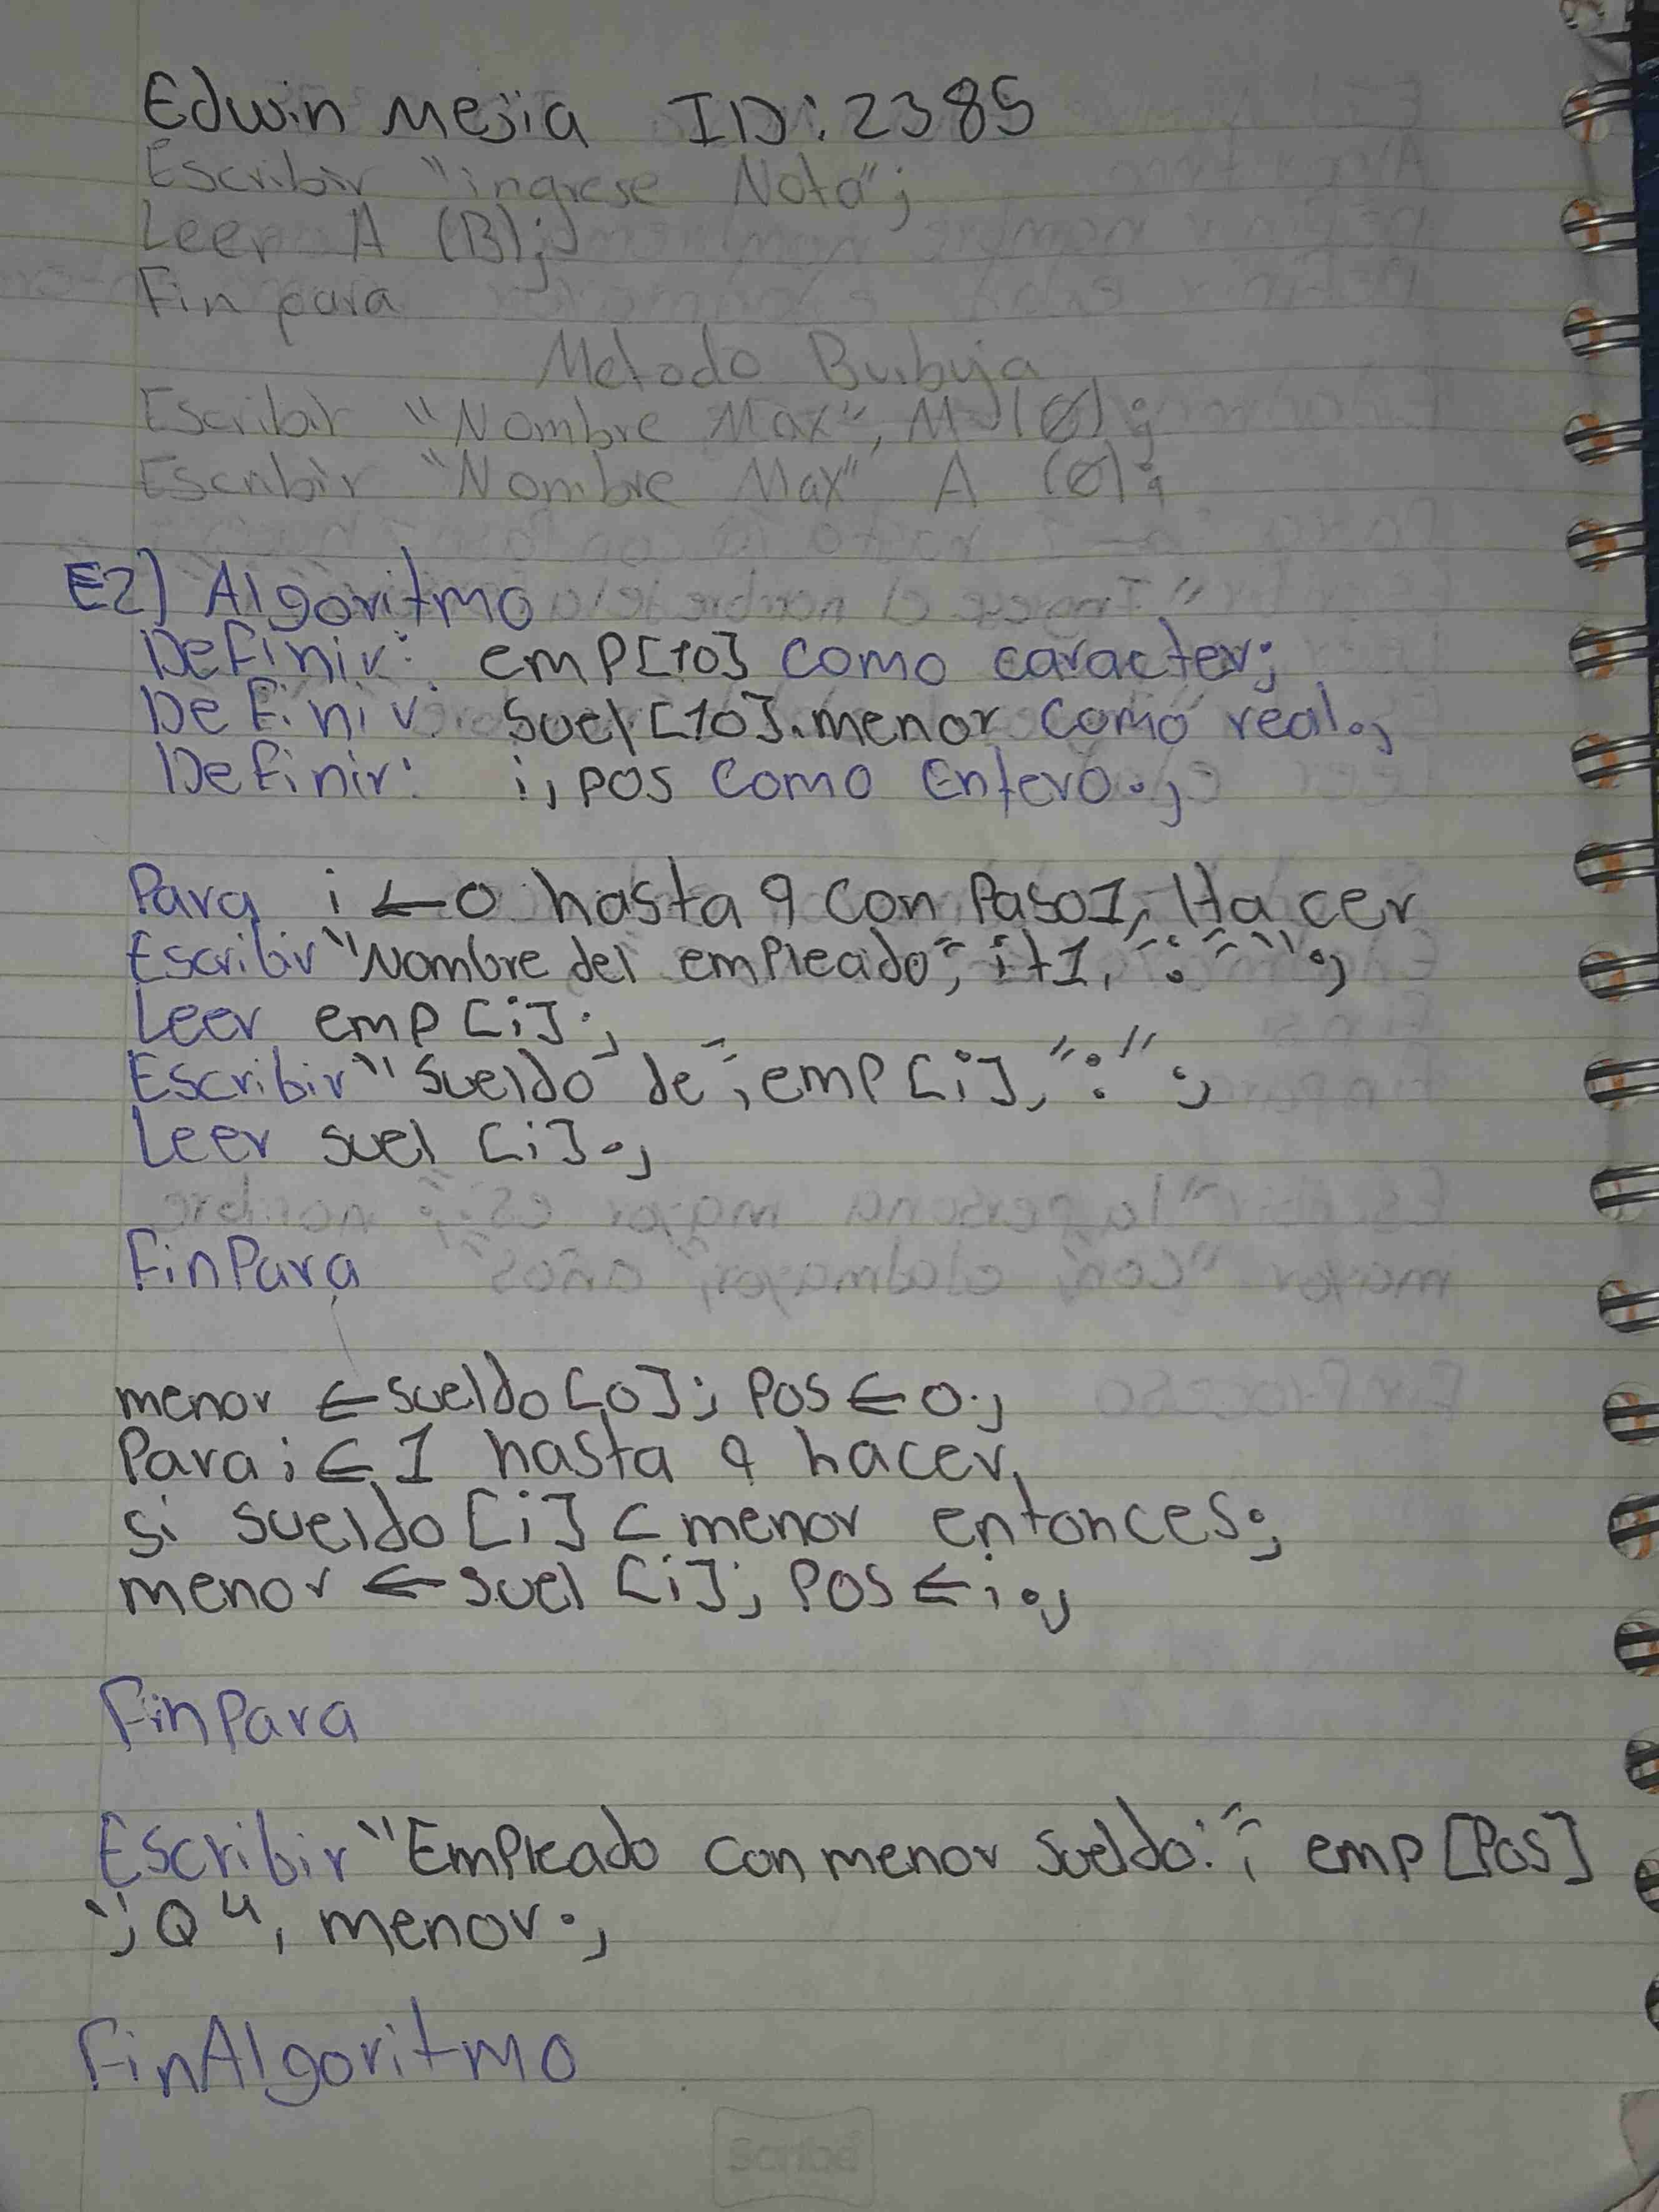 Edwin Mejia ID: 2385
Escribir "ingrese Nota";
Leer A (B);
Fin para
Metodo Burbuja
Escribir "Nombre Max", M (Ø);
Escribir "Nombre Max" A (Ø);
E2) Algoritmo
Definir: emp[10] como caracter;
Definir: Suel[10].menor como real;
Definir: i, pos como Entero;
Para i ← 0 hasta 9 con Paso 1, Hacer
Escribir "Nombre del empleado", i+1, ": ";
Leer emp[i];
Escribir "Sueldo de", emp[i], ":";
Leer suel [i];
FinPara
menor ← sueldo[0]; Pos ← 0;
Para i ← 1 hasta 9 hacer,
si sueldo[i] < menor entonces;
menor ← suel [i]; Pos ← i;
FinPara
Escribir "Empleado con menor sueldo:", emp[Pos]
", Q", menor;
FinAlgoritmo
Scribe